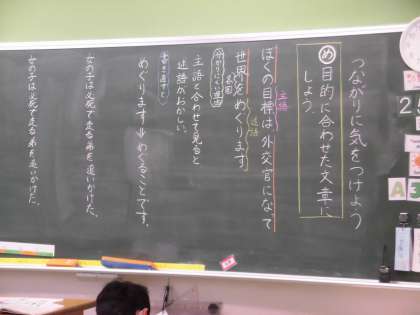 つながりに気をつけよう
め 目的に合わせた文章に
しよう。
主語
ぼくの目標は外交官になって
述語
世界をめぐります。
分かりにくい理由
主語と合わせて見ると
述語がおかしい。
書き直すと
めぐります⇒めぐることです。
女の子は必死で走る弟を追いかけた。
女の子は必死で走る弟を追いかけた。
A